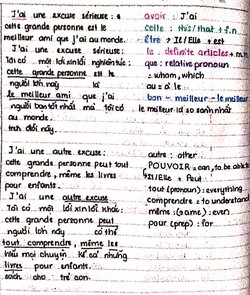 J'ai une excuse sérieuse :
cette grande personne est le
meilleur ami que j'ai au monde.
J'ai une excuse sérieuse:
Tôi có một lời xin lỗi nghiêm túc:
cette grande personne est le
người lớn này là
le meilleur ami que j'ai
người bạn tốt nhất mà tôi có
au monde.
trên đời này.
avoir : J'ai
cette : this/that + f.n
être → Il/Elle + est
le : definite articles + m.n
que : relative pronoun
= whom, which
au = à le
bon - meilleur - le meilleur
le meilleur là so sánh nhất
J'ai une autre excuse:
cette grande personne peut tout
comprendre, même les livres
pour enfants.
J'ai une autre excuse
Tôi có một lời xin lỗi khác:
cette grande personne peut
người lớn này có thể
tout comprendre, même les
hiểu mọi chuyện, kể cả những
livres pour enfants.
sách cho trẻ con.
autre : other
POUVOIR = can, to be able to
Il/Elle + Peut
tout (pronoun) : everything
comprendre = to understand
même : (same) : even
pour (prep) : for